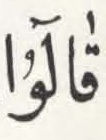 قَالُوٓا